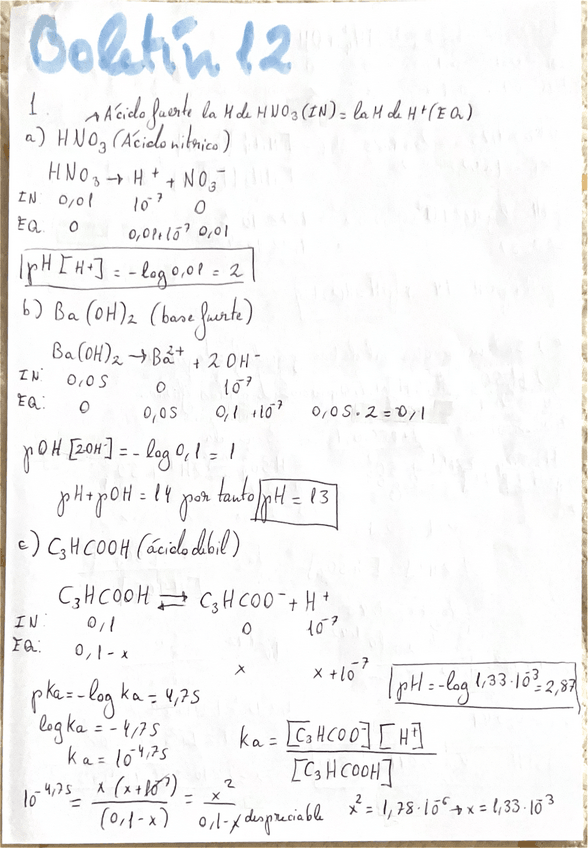 Boletín 12
1.
→ Ácido fuerte la M de HNO₃ (IN) = la M de H⁺ (EQ)
a) HNO₃ (Ácido nítrico)
HNO₃ → H⁺ + NO₃⁻
IN: 0,01 10⁻⁷ 0
EQ: 0 0,01+10⁻⁷ 0,01
pH [H+] = -log 0,01 = 2
b) Ba(OH)₂ (base fuerte)
Ba(OH)₂ → Ba²⁺ + 2OH⁻
IN: 0,05 0 10⁻⁷
EQ: 0 0,05 0,1 + 10⁻⁷ 0,05 · 2 = 0,1
pOH [2OH⁻] = -log 0,1 = 1
pH + pOH = 14 por tanto pH = 13
c) C₃HCOOH (ácido débil)
C₃HCOOH ⇌ C₃HCOO⁻ + H⁺
IN: 0,1 0 10⁻⁷
EQ: 0,1-x x x+10⁻⁷
pH = -log 1,33·10⁻³ = 2,87
pKa = -log ka = 4,75
log ka = -4,75
ka = 10⁻⁴,⁷⁵
ka = [C₃HCOO⁻] [H⁺] / [C₃HCOOH]
10⁻⁴,⁷⁵ = x (x+10⁻⁷) / (0,1-x) = x² / 0,1-x despreciable x² = 1,78·10⁻⁶ → x = 1,33·10⁻³